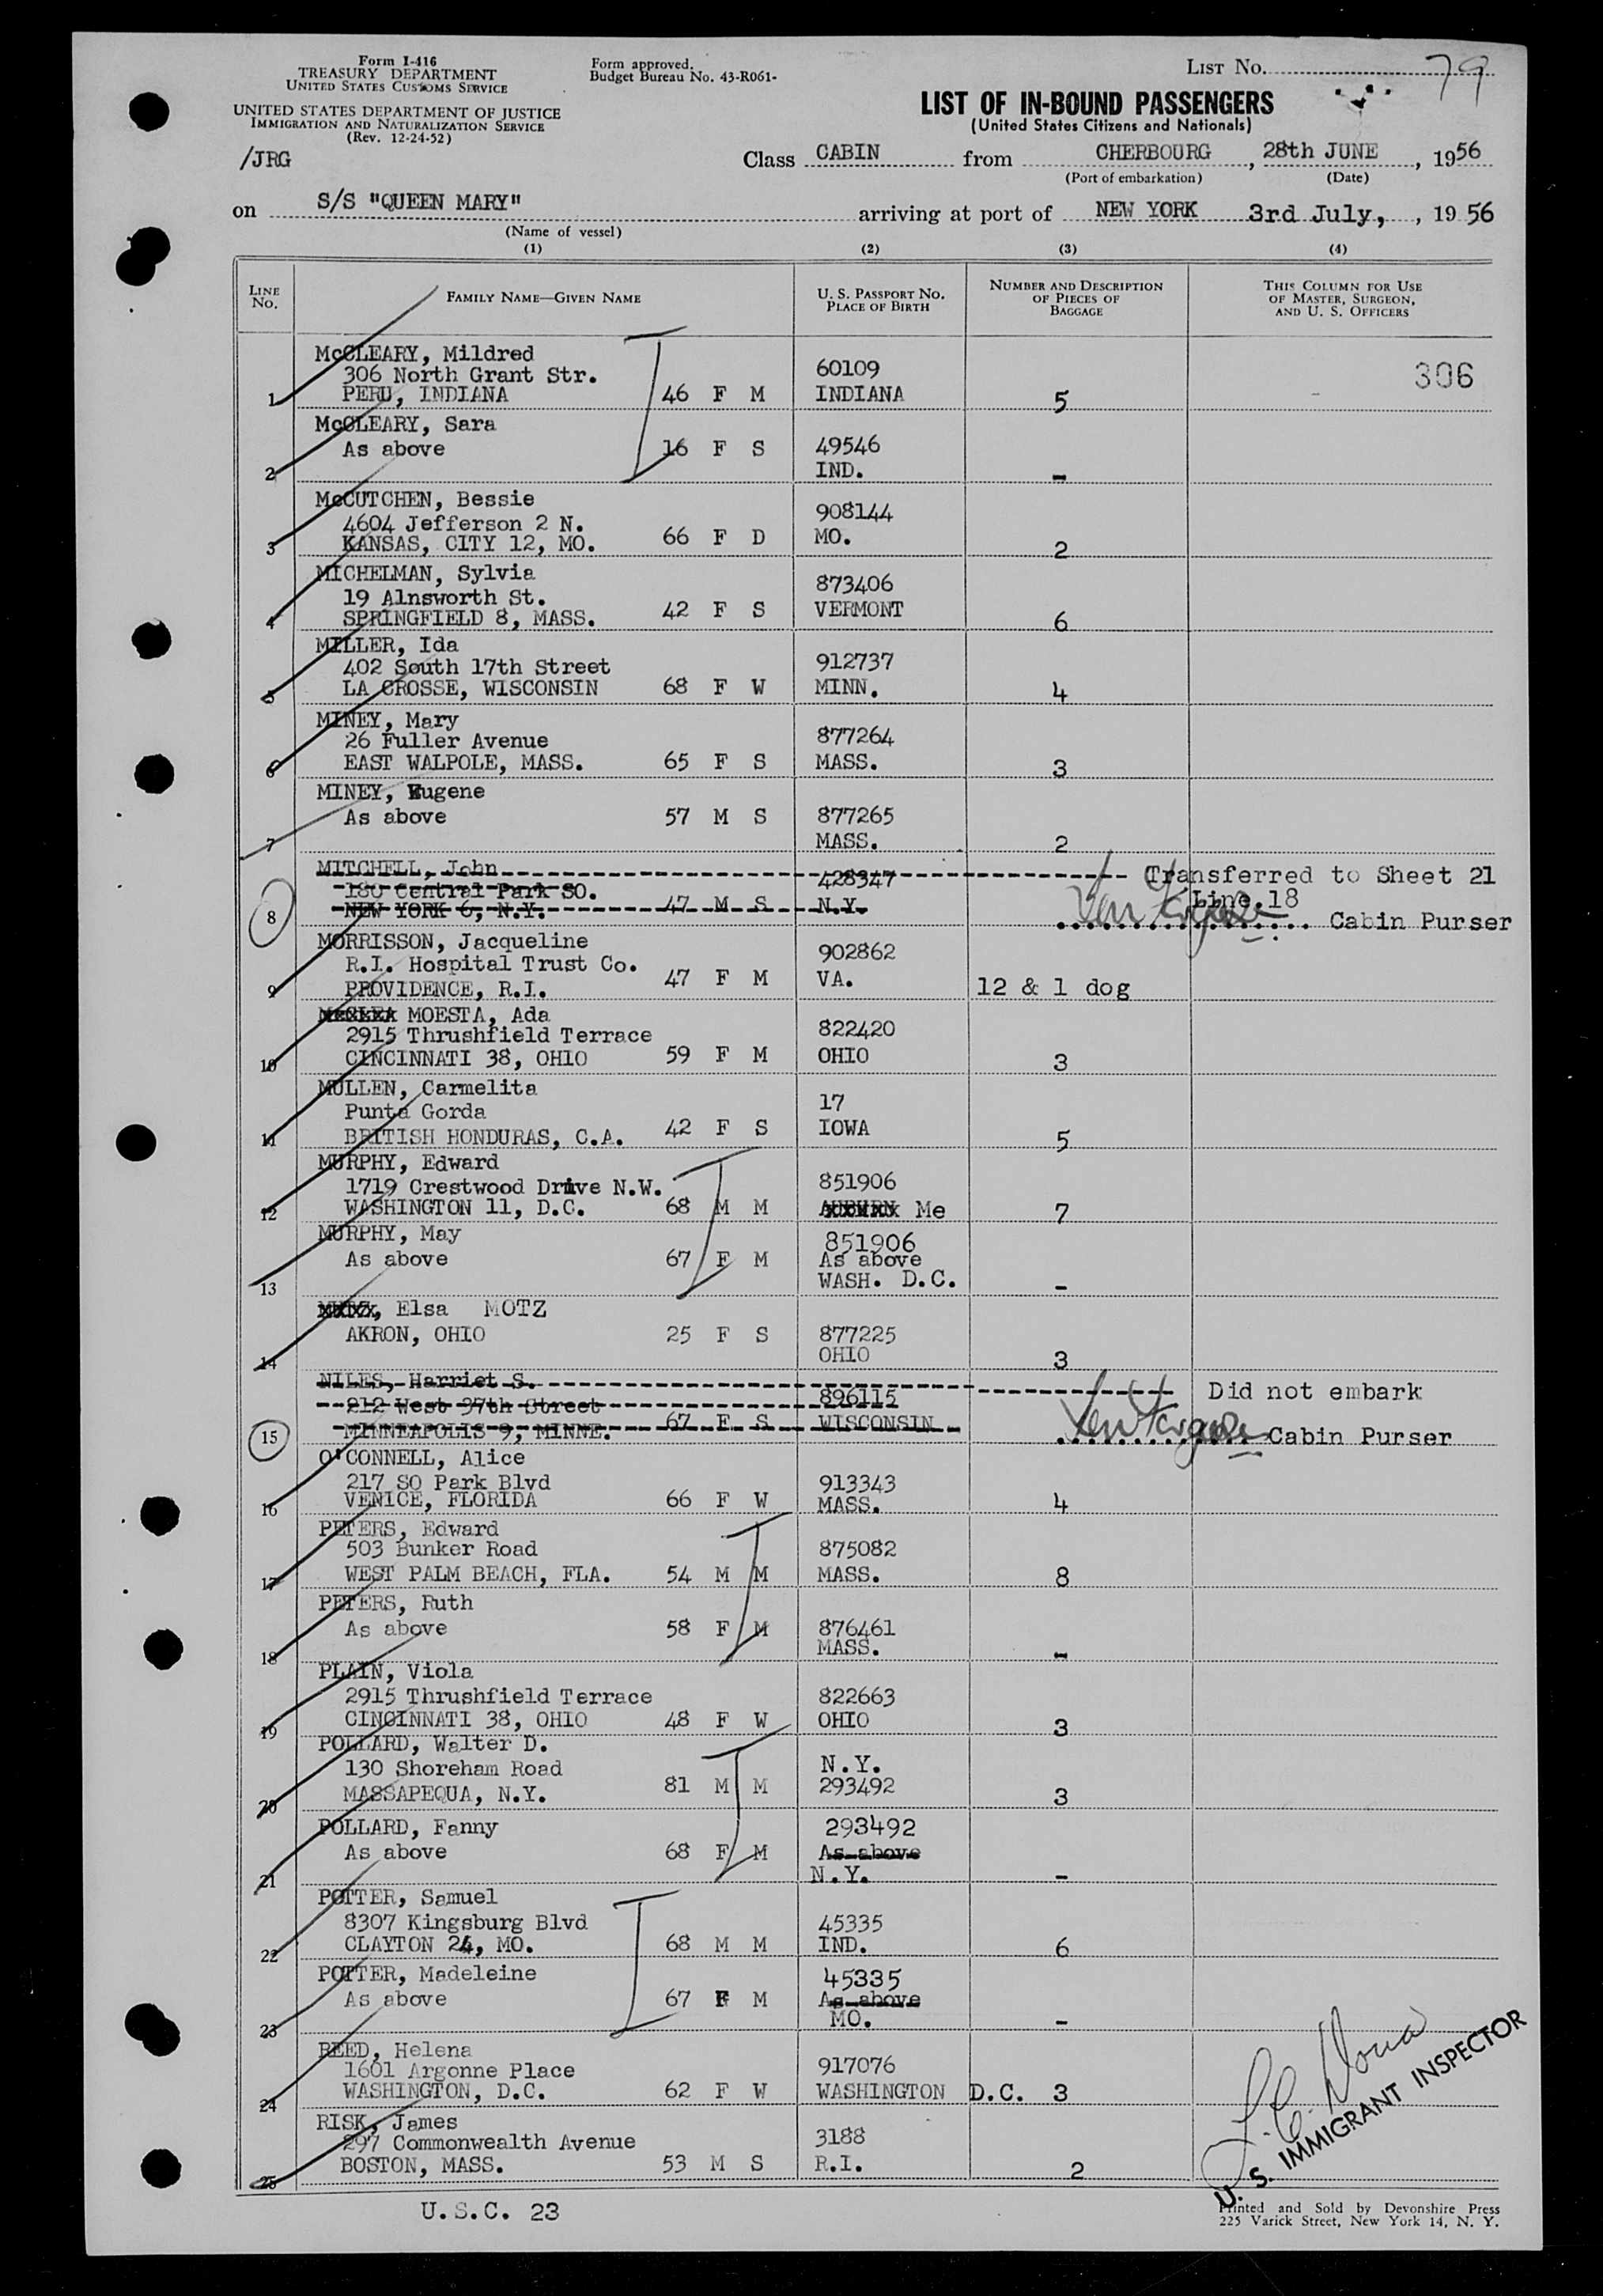 Form I-416
TREASURY DEPARTMENT
UNITED STATES CUSTOMS SERVICE
UNITED STATES DEPARTMENT OF JUSTICE
IMMIGRATION AND NATURALIZATION SERVICE
(Rev. 12-24-52)
Form approved.
Budget Bureau No. 43-R061-
LIST No. 79
LIST OF IN-BOUND PASSENGERS
(United States Citizens and Nationals)
/JRG
Class CABIN from CHERBOURG, 28th JUNE, 1956
(Port of embarkation) (Date)
on S/S "QUEEN MARY" arriving at port of NEW YORK 3rd July, , 1956
(Name of vessel)
(1) (2) (3) (4)
LINE No. FAMILY NAME—GIVEN NAME U. S. PASSPORT NO. PLACE OF BIRTH NUMBER AND DESCRIPTION OF PIECES OF BAGGAGE THIS COLUMN FOR USE OF MASTER, SURGEON, AND U. S. OFFICERS
McCLEARY, Mildred
306 North Grant Str. 60109 306
1 PERU, INDIANA 46 F M INDIANA 5
McCLEARY, Sara
As above 16 F S 49546
2 IND. -
McCUTCHEN, Bessie
4604 Jefferson 2 N. 908144
3 KANSAS, CITY 12, MO. 66 F D MO. 2
MICHELMAN, Sylvia
19 Alnsworth St. 873406
4 SPRINGFIELD 8, MASS. 42 F S VERMONT 6
MILLER, Ida
402 South 17th Street 912737
5 LA CROSSE, WISCONSIN 68 F W MINN. 4
MINEY, Mary
26 Fuller Avenue 877264
6 EAST WALPOLE, MASS. 65 F S MASS. 3
MINEY, Eugene
As above 57 M S 877265
7 MASS. 2
MITCHELL, John 428347 Transferred to Sheet 21
180 Central Park SO. Line 18
8 NEW YORK 6, N.Y. 47 M S N.Y. Cabin Purser
MORRISSON, Jacqueline
R.I. Hospital Trust Co. 902862
9 PROVIDENCE, R.I. 47 F M VA. 12 & 1 dog
MOESTA, Ada
2915 Thrushfield Terrace 822420
10 CINCINNATI 38, OHIO 59 F M OHIO 3
MULLEN, Carmelita
Punta Gorda 17
11 BRITISH HONDURAS, C.A. 42 F S IOWA 5
MURPHY, Edward
1719 Crestwood Drive N.W. 851906
12 WASHINGTON 11, D.C. 68 M M Me 7
MURPHY, May 851906
As above 67 F M As above
13 WASH. D.C. -
Elsa MOTZ
AKRON, OHIO 25 F S 877225
14 OHIO 3
NILES, Harriet S. 896115 Did not embark
212 West 97th Street
15 MINNEAPOLIS 9, MINNE. 67 F S WISCONSIN Cabin Purser
O'CONNELL, Alice
217 SO Park Blvd 913343
16 VENICE, FLORIDA 66 F W MASS. 4
PETERS, Edward
503 Bunker Road 875082
17 WEST PALM BEACH, FLA. 54 M M MASS. 8
PETERS, Ruth
As above 58 F M 876461
18 MASS. -
PLAIN, Viola
2915 Thrushfield Terrace 822663
19 CINCINNATI 38, OHIO 48 F W OHIO 3
POLLARD, Walter D.
130 Shoreham Road N.Y.
20 MASSAPEQUA, N.Y. 81 M M 293492 3
POLLARD, Fanny 293492
As above 68 F M As above
21 N.Y. -
POTTER, Samuel
8307 Kingsburg Blvd 45335
22 CLAYTON 24, MO. 68 M M IND. 6
POTTER, Madeleine 45335
As above 67 F M As above
23 MO. -
REED, Helena
1601 Argonne Place 917076
24 WASHINGTON, D.C. 62 F W WASHINGTON D.C. 3
RISK, James
297 Commonwealth Avenue 3188
25 BOSTON, MASS. 53 M S R.I. 2
U. S. IMMIGRANT INSPECTOR
U.S.C. 23
Printed and Sold by Devonshire Press
225 Varick Street, New York 14, N. Y.